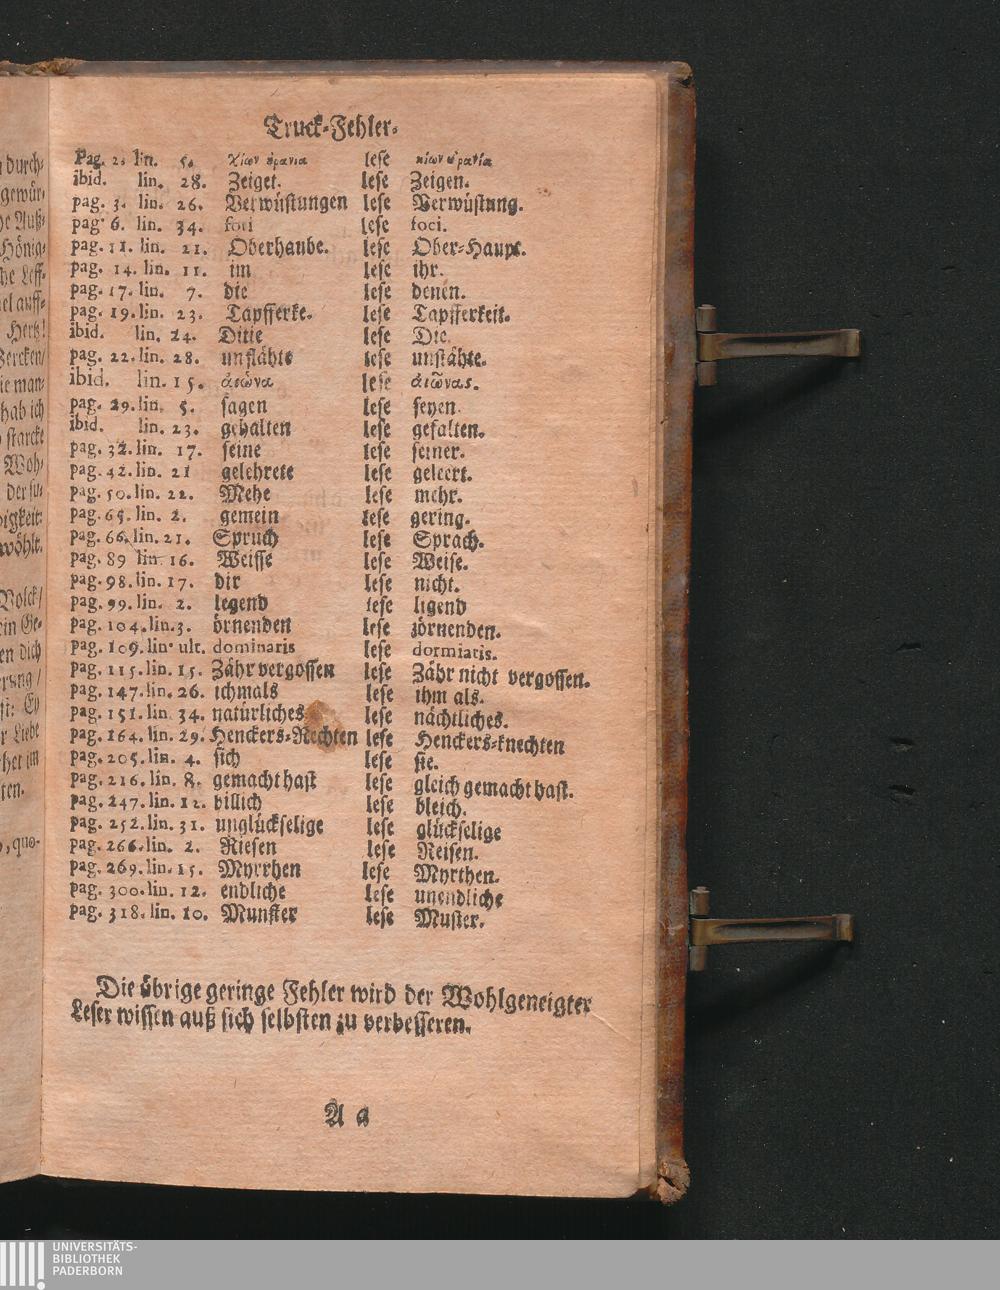 Truck-Fehler.
Pag. 2. lin. 5. χίων ȣρανια lese κίων ȣρανία
ibid. lin. 28. Zeiget. lese Zeigen.
pag. 3. lin. 26. Verwüstungen lese Verwüstung.
pag. 6. lin. 34. foci lese foci.
pag. 11. lin. 21. Oberhaube. lese Ober-Haupt.
pag. 14. lin. 11. im lese ihr.
pag. 17. lin. 7. die lese denen.
pag. 19. lin. 23. Tapfferke. lese Tapfferkeit.
ibid. lin. 24. Ditie lese Die.
pag. 22. lin. 28. unstähte lese unstähte.
ibid. lin. 15. lese
pag. 29. lin. 5. sagen lese seyen.
ibid. lin. 23. gehalten lese gefalten.
pag. 32. lin. 17. seine lese seiner.
pag. 42. lin. 21 gelehrete lese geleert.
pag. 50. lin. 22. Mehe lese mehr.
pag. 65. lin. 2. gemein lese gering.
pag. 66. lin. 21. Spruch lese Sprach.
pag. 89 lin. 16. Weisse lese Weise.
pag. 98. lin. 17. dir lese nicht.
pag. 99. lin. 2. legend lese ligend
pag. 104. lin. 3. örnenden lese zörnenden.
pag. 109. lin. ult. dominaris lese dormiatis.
pag. 115. lin. 15. Zähr vergossen lese Zähr nicht vergossen.
pag. 147. lin. 26. ichmals lese ihm als.
pag. 151. lin. 34. naturliches lese nächtliches.
pag. 164. lin. 29. Henckers-Rechten lese Henckers-knechten
pag. 205. lin. 4. sich lese sie.
pag. 216. lin. 8. gemacht hast lese gleich gemacht hast.
pag. 247. lin. 12. billich lese bleich.
pag. 252. lin. 31. unglückselige lese glückselige
pag. 266. lin. 2. Riesen lese Reisen.
pag. 269. lin. 15. Myrrhen lese Myrthen.
pag. 300. lin. 12. endliche lese unendliche
pag. 318. lin. 10. Munster lese Muster.
Die übrige geringe Fehler wird der Wohlgeneigter
Leser wissen auß sich selbsten zu verbesseren.
A a
durch-
gewür-
Auß-
Hönig-
Leff-
auff-
Hertz!
Zercken/
man-
hab ich
starcke
Woh-
der su-
Volck/
in Ge-
dich
Liebe
quo-
UNIVERSITÄTS-
BIBLIOTHEK
PADERBORN